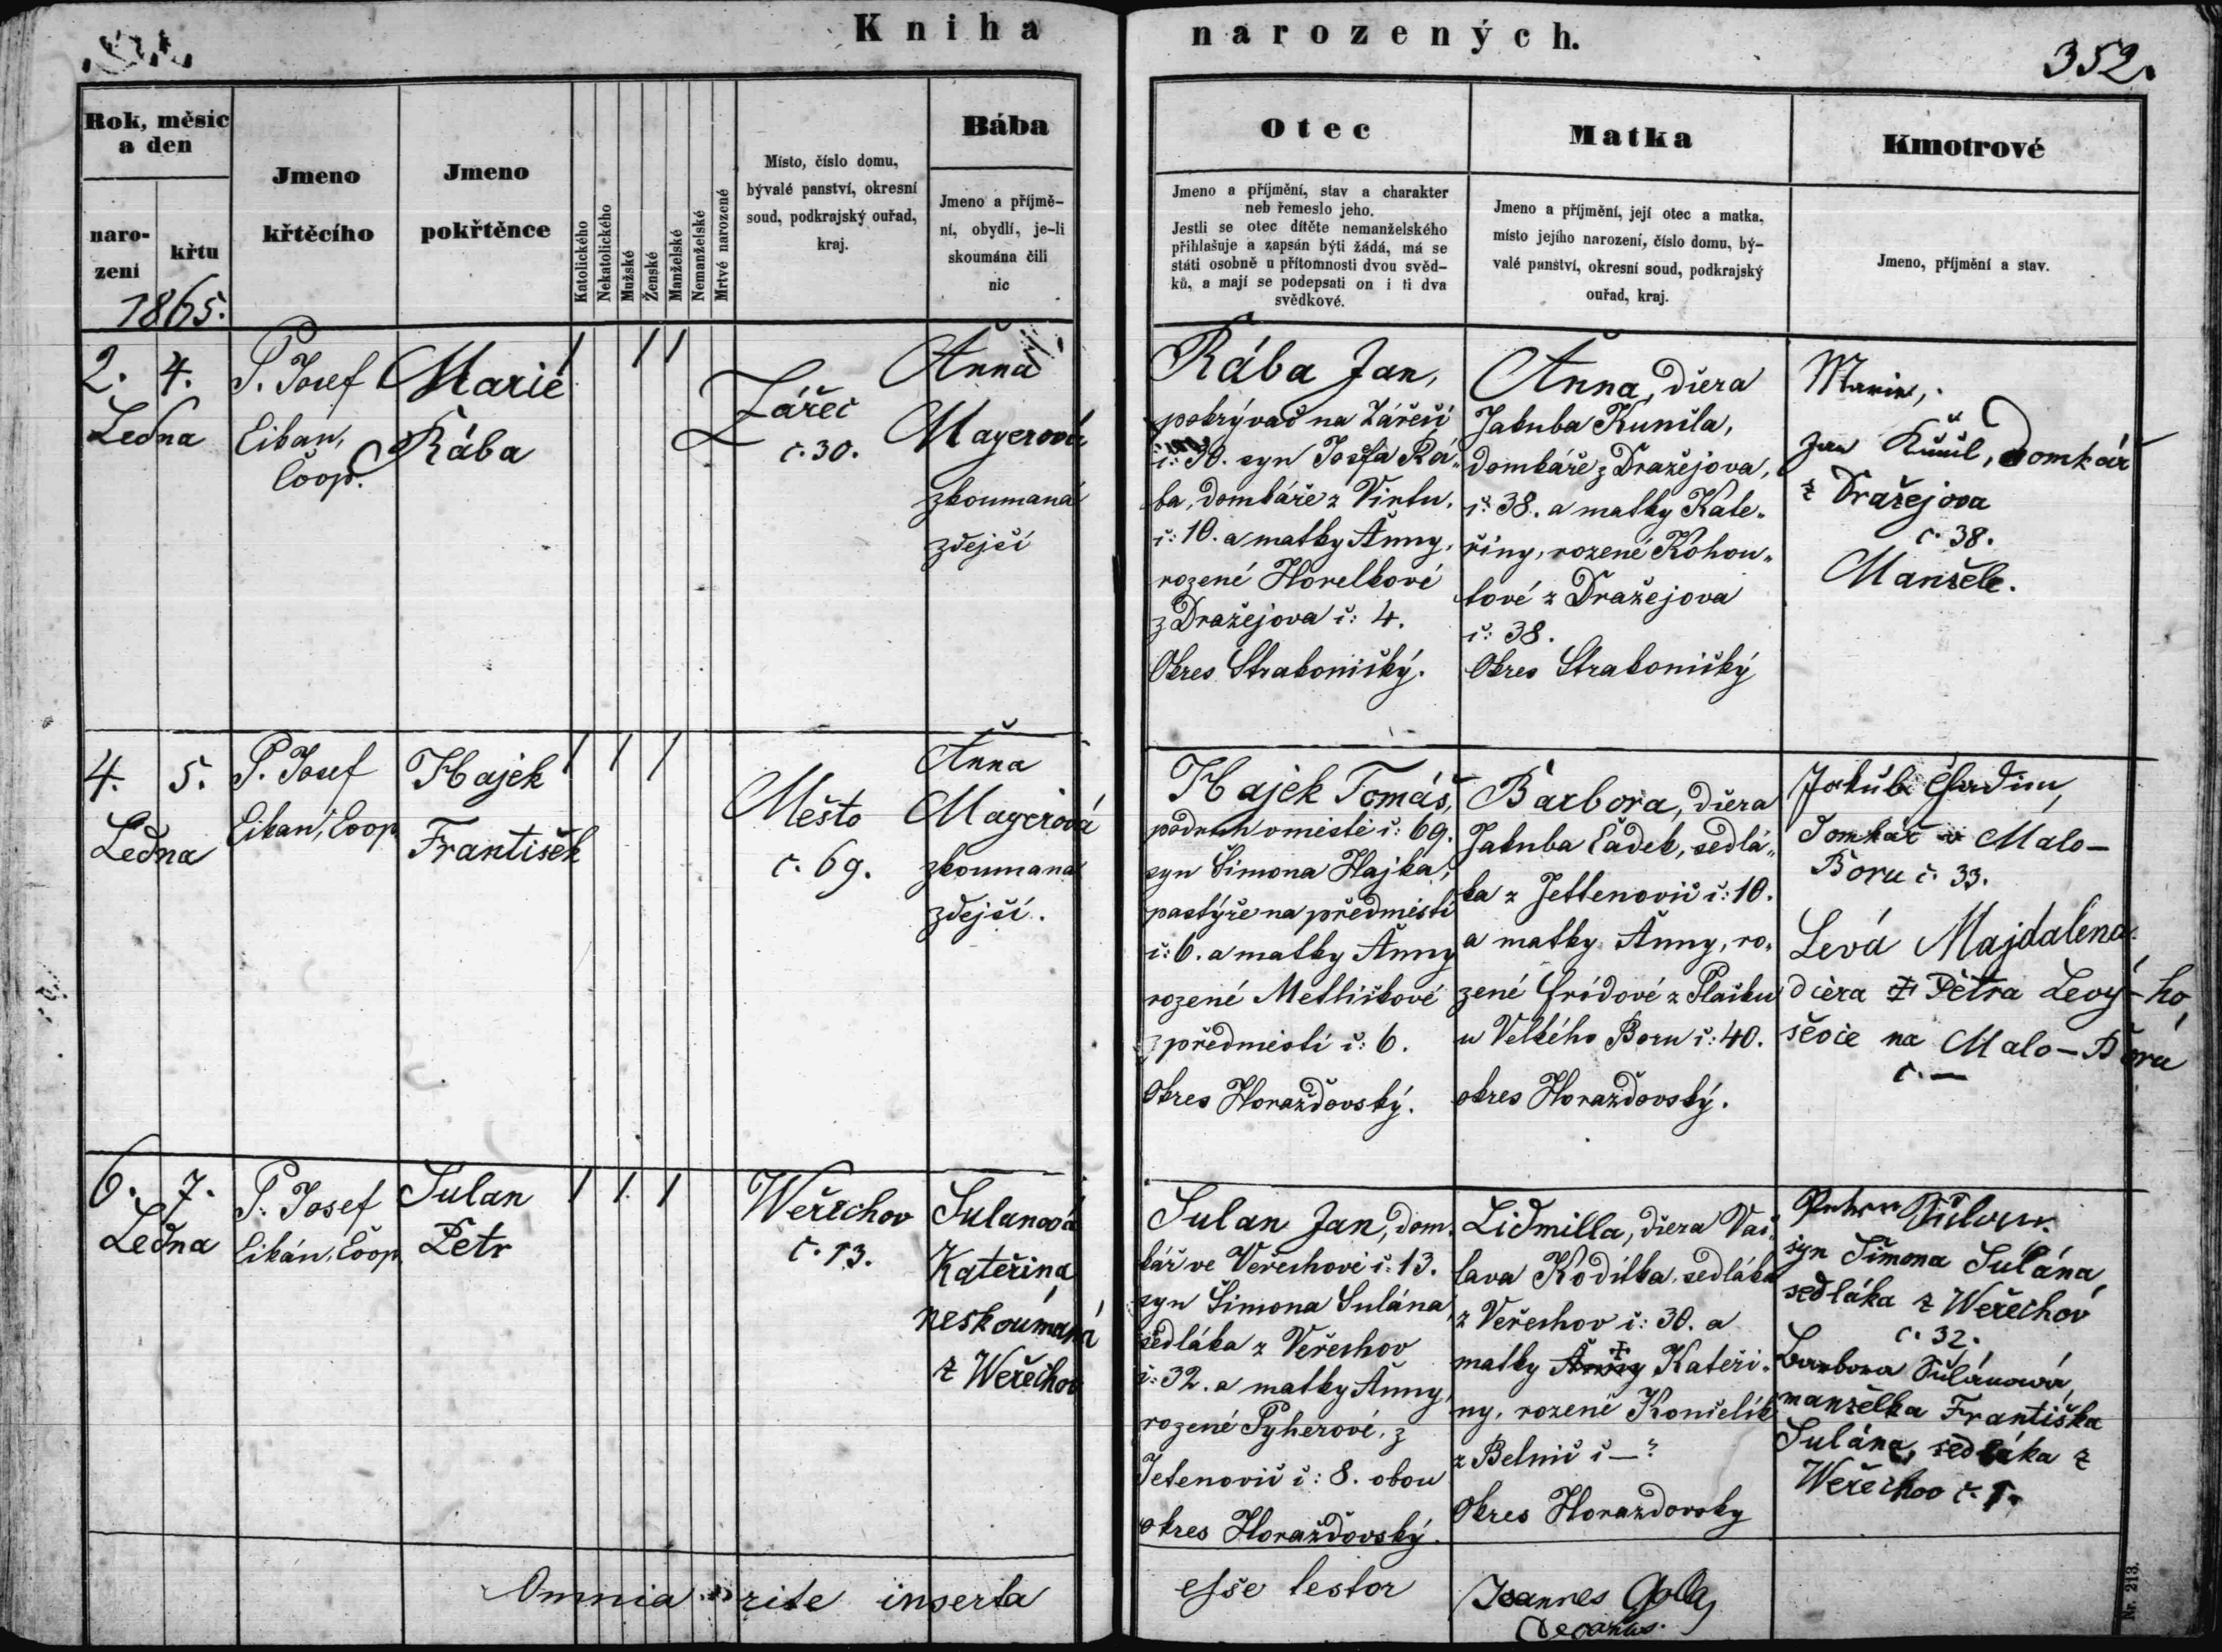 Kniha narozených.
352.
Rok, měsíc
a den
naro-
zení
křtu
1865.
Jmeno
křtěcího
Jmeno
pokřtěnce
Katolického
Nekatolického
Mužské
Ženské
Manželské
Nemanželské
Mrtvé narozené
Místo, číslo domu,
bývalé panství, okresní
soud, podkrajský ouřad,
kraj.
Bába
Jmeno a příjmě-
ní, obydlí, je-li
skoumána čili
nic
Otec
Jmeno a příjmění, stav a charakter
neb řemeslo jeho.
Jestli se otec dítěte nemanželského
přihlašuje a zapsán býti žádá, má se
státi osobně u přítomnosti dvou svěd-
ků, a mají se podepsati on i ti dva
svědkové.
Matka
Jmeno a příjmění, její otec a matka,
místo jejího narození, číslo domu, bý-
valé panství, okresní soud, podkrajský
ouřad, kraj.
Kmotrové
Jmeno, příjmění a stav.
2. 4.
Ledna
P. Josef
Eiban,
Coop.
Marie
Rába
Zářeč
č. 30.
Anna
Mayerová
zkoumaná
zdejší
Rába Jan,
pokrývač na Zářečí
č: 30. syn Josefa Rá-
ba, domkáře z Virtu.
č: 10. a matky Anny,
rozené Horelkové
z Dražejova č: 4.
Okres Strakonický.
Anna, dcera
Jakuba Kunila,
domkáře z Dražejova,
č: 38. a matky Kate-
řiny, rozené Kohou-
tové z Dražejova
č: 38.
Okres Strakonický
Marie,
Jan domkář
z Dražejova
č. 38.
Manžele.
4. 5.
Ledna
P. Josef
Eiban, Coop.
Hajek
František
Město
č. 69.
Anna
Mayerová
zkoumaná
zdejší.
Hajek Tomáš,
podruh v městě č: 69.
syn Šimona Hajka,
pastýře na předměstí
č: 6. a matky Anny
rozené Metličkové
z předměstí č: 6.
Okres Horažďovský.
Barbora, dcera
Jakuba Čadek, sedlá-
ka z Jettenovič č: 10.
a matky Anny, ro-
zené Frídové z
u Velkého Boru č: 40.
okres Horažďovský.
Jakub
Domkář v Malo-
Boru č. 33.
Levá Majdalena,
dcera † Petra Levý-ho,
ševce na Malo-Boru
č. —
6. 7.
Ledna
P. Josef
Eibán, Coop.
Sulan
Petr
Weřechov
č. 13.
Sulanová
Kateřina,
neskoumaná
z Weřechov
Sulan Jan, dom-
kář ve Veřechově č: 13.
syn Šimona Sulána,
sedláka z Veřechov
č: 32. a matky Anny,
rozené Pyherové, z
Jetenovič č: 8. obou
okres Horažďovský.
Lidmilla, dcera Vác-
lava Kodilka, sedláka
z Veřechov č: 30. a
matky Anny Kateři-
ny, rozené Končelík
z Belnič č —?
Okres Horazdovsky
syn Šimona Sulána,
sedláka z Weřechov
č. 32.
Barbora Sulánowá,
manželka Františka
Sulána, sedláka z
Weřechov č. 1.
Omnia rite inserta esse testor
Joannes Golly
Decanus.
Nr. 213.